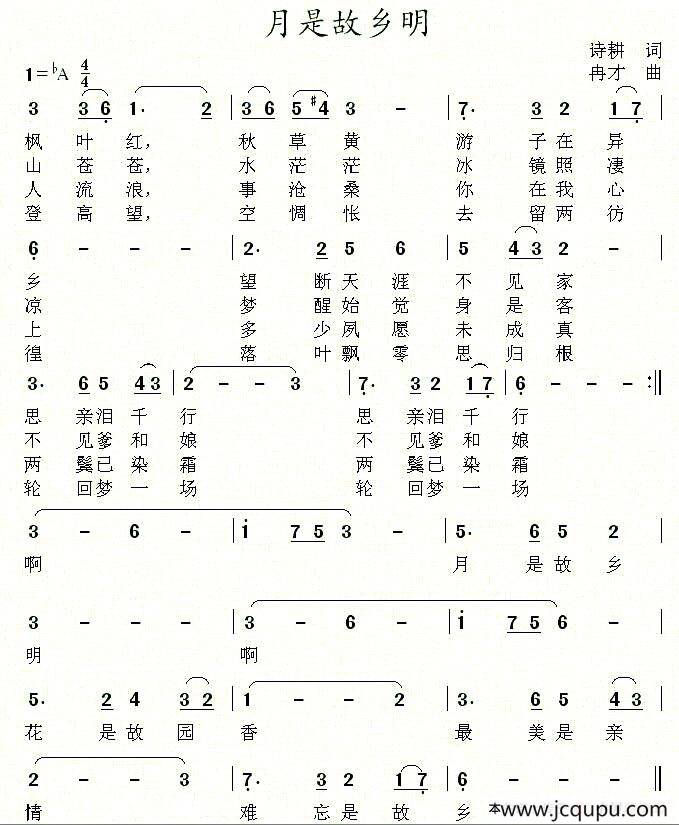 月是故乡明
诗耕 词
1=♭A 4/4
冉才 曲
3 3 6 1· 2 | 3 6 5 #4 3 – | 7· 3 2 1 7 |
枫叶红, 秋草黄 游子在异
山苍苍, 水茫茫 冰镜照凄
人流浪, 事沧桑 你在我心
登高望, 空惆怅 去留两彷
6 – – – | 2· 2 5 6 | 5 4 3 2 – |
乡 望断天涯不见家
凉 梦醒始觉身是客
上 多少夙愿未成真
徨 落叶飘零思归根
3· 6 5 4 3 | 2 – – 3 | 7· 3 2 1 7 | 6 – – :‖
思亲泪千行 思亲泪千行
不见爹和娘 不见爹和娘
两鬓已染霜 两鬓已染霜
轮回梦一场 轮回梦一场
3 – 6 – | i 7 5 3 – | 5· 6 5 2 |
啊 月是故乡
3 – – – | 3 – 6 – | i 7 5 6 – |
明 啊
5· 2 4 3 2 | 1 – – 2 | 3· 6 5 4 3 |
花是故园香 最美是亲
2 – – 3 | 7· 3 2 1 7 | 6 – – – ‖
情 难忘是故乡
本www.jcqupu.com